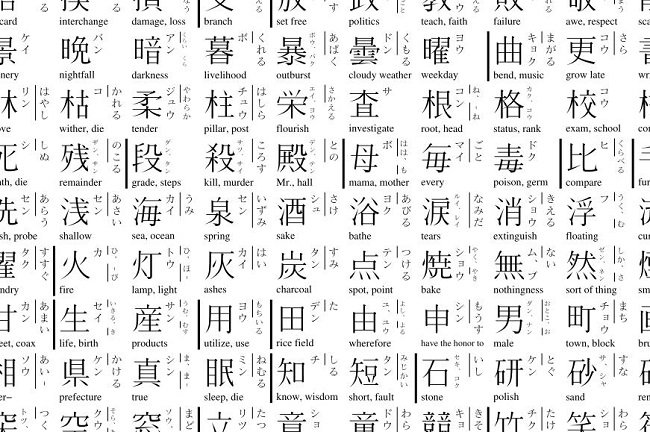 card interchange damage, loss branch set free politics teach, faith failure awe, respect
景 ケイ 晩 バン 暗 アン 暮 ボ くれる 暴 ボウ、バク あばく 曇 ドン くもる 曜 ヨウ 曲 キョク まがる 更 コウ さら
nightfall darkness livelihood outburst cloudy weather weekday bend, music grow late
林 リン はやし 枯 コ かれる 柔 ジュウ やわらか 柱 チュウ はしら 栄 エイ、ヨウ さかえる 査 サ 根 コン 格 カク、コウ 校 コウ
wither, die tender pillar, post flourish investigate root, head status, rank exam, school
死 シ しぬ 残 ザン、サン のこる 段 ダン、タン 殺 サツ、サイ ころす 殿 デン、テン との 母 ボ はは、も 毎 マイ ごと 毒 ドク 比 ヒ くらべる
die remainder grade, steps kill, murder Mr., hall mama, mother every poison, germ compare
洗 セン あらう 浅 セン あさい 海 カイ うみ 泉 セン いずみ 酒 シュ さけ 浴 ヨク あびる 涙 ルイ、レイ なみだ 消 ショウ きえる 浮 フ うく、む
probe shallow sea, ocean spring sake bathe tears extinguish floating
濯 タク すすぐ 火 カ ひ、-び 灯 トウ ひ、ほ- 灰 カイ はい 炭 タン すみ 点 テン つける 焼 ショウ やく、やき 無 ム、ブ ない 然 ゼン、ネン しか、さ
fire lamp, light ashes charcoal spot, point bake nothingness sort of thing
甘 カン あまい 生 セイ いきる、き 産 サン うむ、むす 用 ヨウ もちいる 田 デン た 由 ユ、ユウ よし、よる 申 シン もうす 男 ダン、ナン おとこ、お 町 チョウ まち
coax life, birth products utilize, use rice field wherefore have the honor to male town, block
相 ソウ あい- 県 ケン かける 真 シン ま、ま- 眠 ミン ねむる 知 チ しる 短 タン みじかい 石 セキ、コク いし 研 ケン とぐ 砂 サ、シャ すな
prefecture true sleep, die know, wisdom short, fault stone polish sand
突 トツ つく 空 クウ そら 窓 ソウ まど 立 リツ たつ 章 ショ 童 ドウ わら 競 キョ きそ 竹 チク たけ 笑 ショ わら